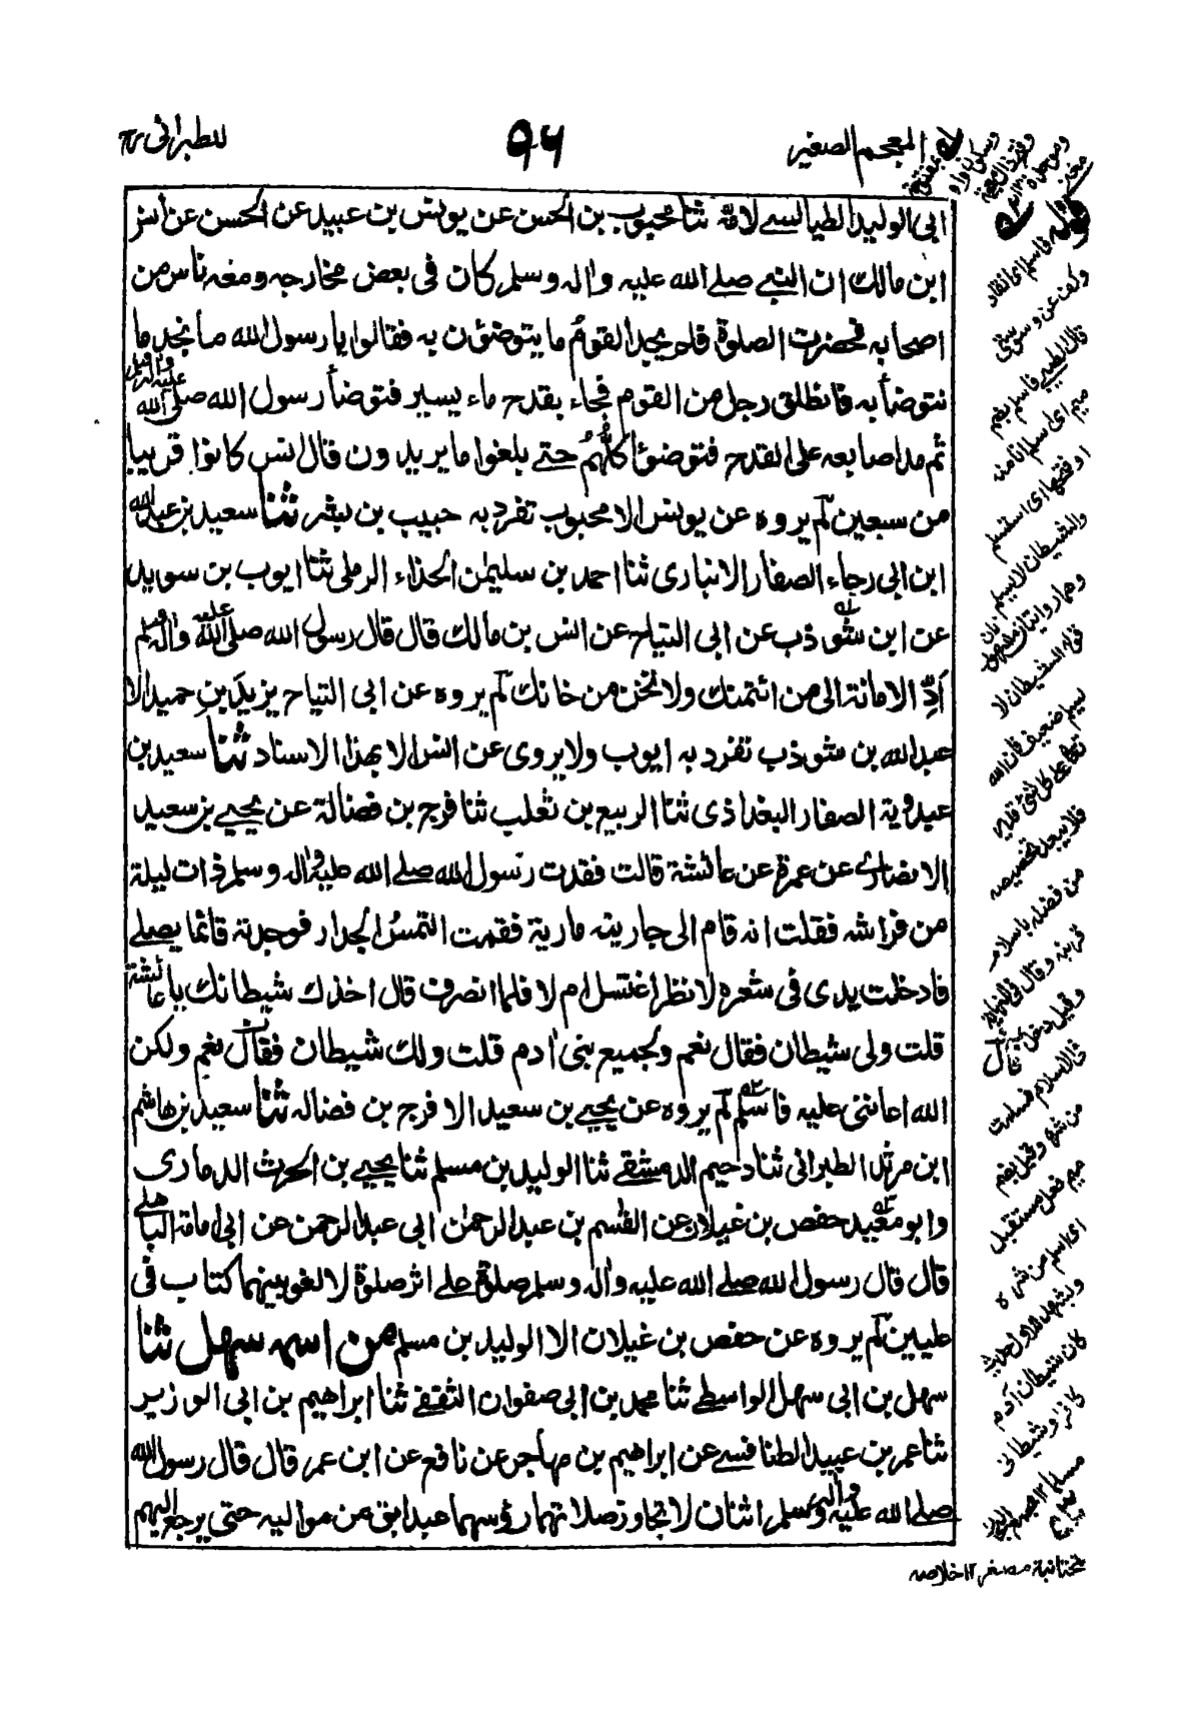 المعجم الصغير
٩٦
للطبراني رح
ابى الوليد الطيالسے لامّه ثنا محبوب بن الحسن عن يونس بن عبيد عن الحسن عن أنس
ابن مالك ان النبے صلے الله عليه واله وسلم كان فى بعض مخارجه ومعه ناس من
اصحابه فحضرت الصلوة فلم يجد القوم ما يتوضئون به فقالوا يا رسول الله ما نجد ما
نتوضأ به فانطلق رجل من القوم فجاء بقدح ماء يسير فتوضأ رسول الله صلى الله عليه واله وسلم
ثم مد اصابعه على القدح فتوضئوا كلُّهم حتے بلغوا ما يريدون قال انس كانوا قريبا
من سبعين لم يروه عن يونس الا محبوب تفرد به حبيب بن بشر ثنا سعيد بن عبد الله
ابن ابى رجاء الصفار الانبارى ثنا احمد بن سليمٰن الحذاء الرملى ثنا ايوب بن سويد
عن ابن شوذب عن ابى التياح عن انس بن مالك قال قال رسول الله صلى الله عليه واله وسلم
اَدِّ الامانة الى من ائتمنك ولا تخن من خانك لم يروه عن ابى التياح يزيد بن حميد الا
عبد الله بن شوذب تفرد به ايوب ولا يروى عن انس الا بهذا الاسناد ثنا سعيد بن
عبدوية الصفار البغداذى ثنا الربيع بن ثعلب ثنا فرج بن فضالة عن يحيے بن سعيد
الانصارے عن عمرة عن عائشة قالت فقدت رسول الله صلے الله عليه واله وسلم ذات ليلة
من فراشه فقلت انه قام الى جاريته مارية فقمت التمسُ الجدار فوجدته قائما يصلے
فادخلت يدى فى شعره لانظر اغتسل ام لا فلما انصرف قال اخذك شيطانك يا عائشة
قلت ولى شيطان فقال نعم ولجميع بنى اٰدم قلت ولك شيطان فقال نعم ولكن
الله اعاننى عليه فاسلم لم يروه عن يحيے بن سعيد الا فرج بن فضاله ثنا سعيد بن هاشم
ابن مرثد الطبرانى ثنا دحيم الدمشقے ثنا الوليد بن مسلم ثنا يحيے بن الحرث الدمارى
وابو معيد حفص بن غيلان عن القٰسم بن عبد الرحمٰن ابى عبد الرحمن عن ابى امامة الباهلے
قال قال رسول الله صلے الله عليه واله وسلم صلوة علے اثر صلوة لا لغو بينهما كتاب فى
عليين لم يروه عن حفص بن غيلان الا الوليد بن مسلم من اسمه سهل ثنا
سهل بن ابى سهل الواسطے ثنا محمد بن ابى صفوان الثقفے ثنا ابراهيم بن ابى الوزير
ثنا عمر بن عبيد الطنافسے عن ابراهيم بن مهاجر عن نافع عن ابن عمر قال قال رسول الله
صلے الله عليه واله وسلم اثنان لا تجاوز صلاتهما رؤسهما عبد ابق من مواليه حتى يرجع اليهم
قوله فاسلم اى انقاد
وكف عن وسوستى
قال الطيبى فاسلم بضم
ميم اى اسلم انا منه
او فتحها اى استسلم
والشيطان لا يسلم
وهما روايتان مشهورتان
قوله الشيطان لا
يسلم ضعيف فان الله
تعالى على كل شئ قدير
فلا يبعد تخصيصه
من فضله باسلام
قرينه وقال فى النهاية
وقيل دخل
فى الاسلام فسلمت
من شره وقيل بضم
ميم فعل مستقبل
اى اسلم من شره
ويشهد للاول حديث
كان شيطان ادم
كافرا وشيطانى
مسلما